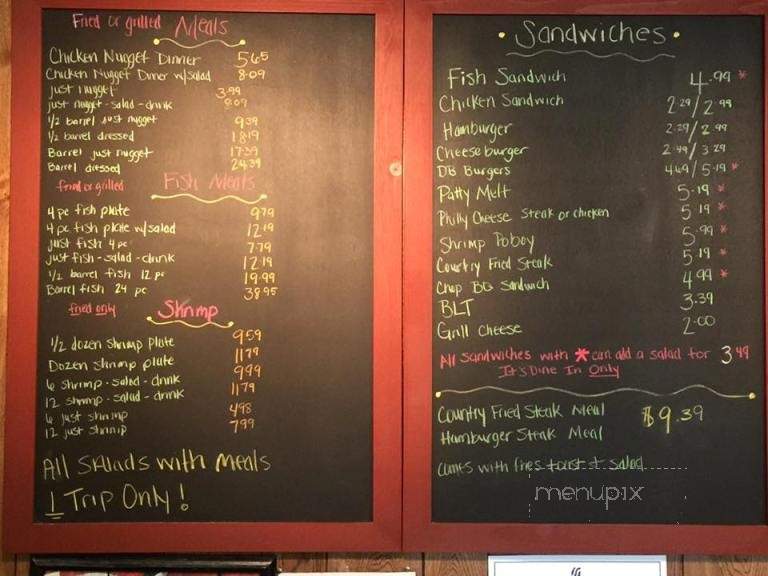 Fried or grilled Meals
Chicken Nugget Dinner 5.65
Chicken Nugget Dinner w/salad 8.09
just nugget 3.99
just nugget - salad - drink 8.09
1/2 barrel just nugget 9.39
1/2 barrel dressed 18.19
Barrel just nugget 17.39
Barrel dressed 24.39
fried or grilled Fish Meals
4 pc fish plate 9.79
4 pc fish plate w/salad 12.19
just fish 4 pc 7.79
just fish - salad - drink 12.19
1/2 barrel fish 12 pc 19.99
Barrel fish 24 pc 38.95
fried only Shrimp
1/2 dozen shrimp plate 9.59
Dozen shrimp plate 11.79
6 shrimp - salad - drink 9.99
12 shrimp - salad - drink 11.79
6 just shrimp 4.98
12 just shrimp 7.99
All Salads with Meals
1 Trip Only!
• Sandwiches •
Fish Sandwich 4.99 *
Chicken Sandwich 2.29/2.99
Hamburger 2.29/2.99
Cheeseburger 2.49/3.29
DB Burgers 4.69/5.19 *
Patty Melt 5.19 *
Philly Cheese Steak or chicken 5.19 *
Shrimp Poboy 5.99 *
Country Fried Steak 5.19 *
Chop BBQ Sandwich 4.99 *
BLT 3.39
Grill Cheese 2.00
All Sandwiches with * can add a salad for 3.49
It's Dine In Only
Country Fried Steak Meal $9.39
Hamburger Steak Meal
comes with fries toast & salad
menupix